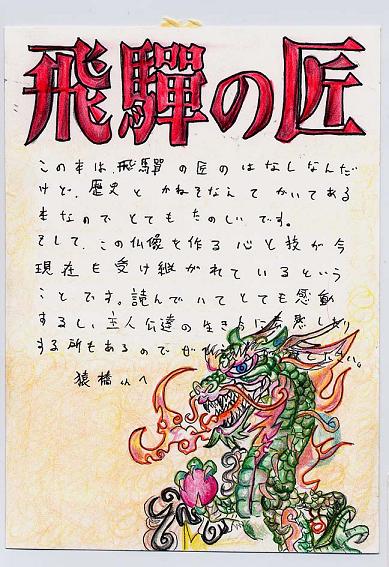 飛驒の匠
この本は、飛驒の匠のはなしなんだ
けど、歴史とかねそなえてかいてある
本なのでとてもたのしいです。
そして、この仏像を作る心と技が今
現在も受け継がれているという
ことです。読んでいてとても感動
するし、主人公達の生き方に共感したり
する所もあるのでぜひ
猿橋